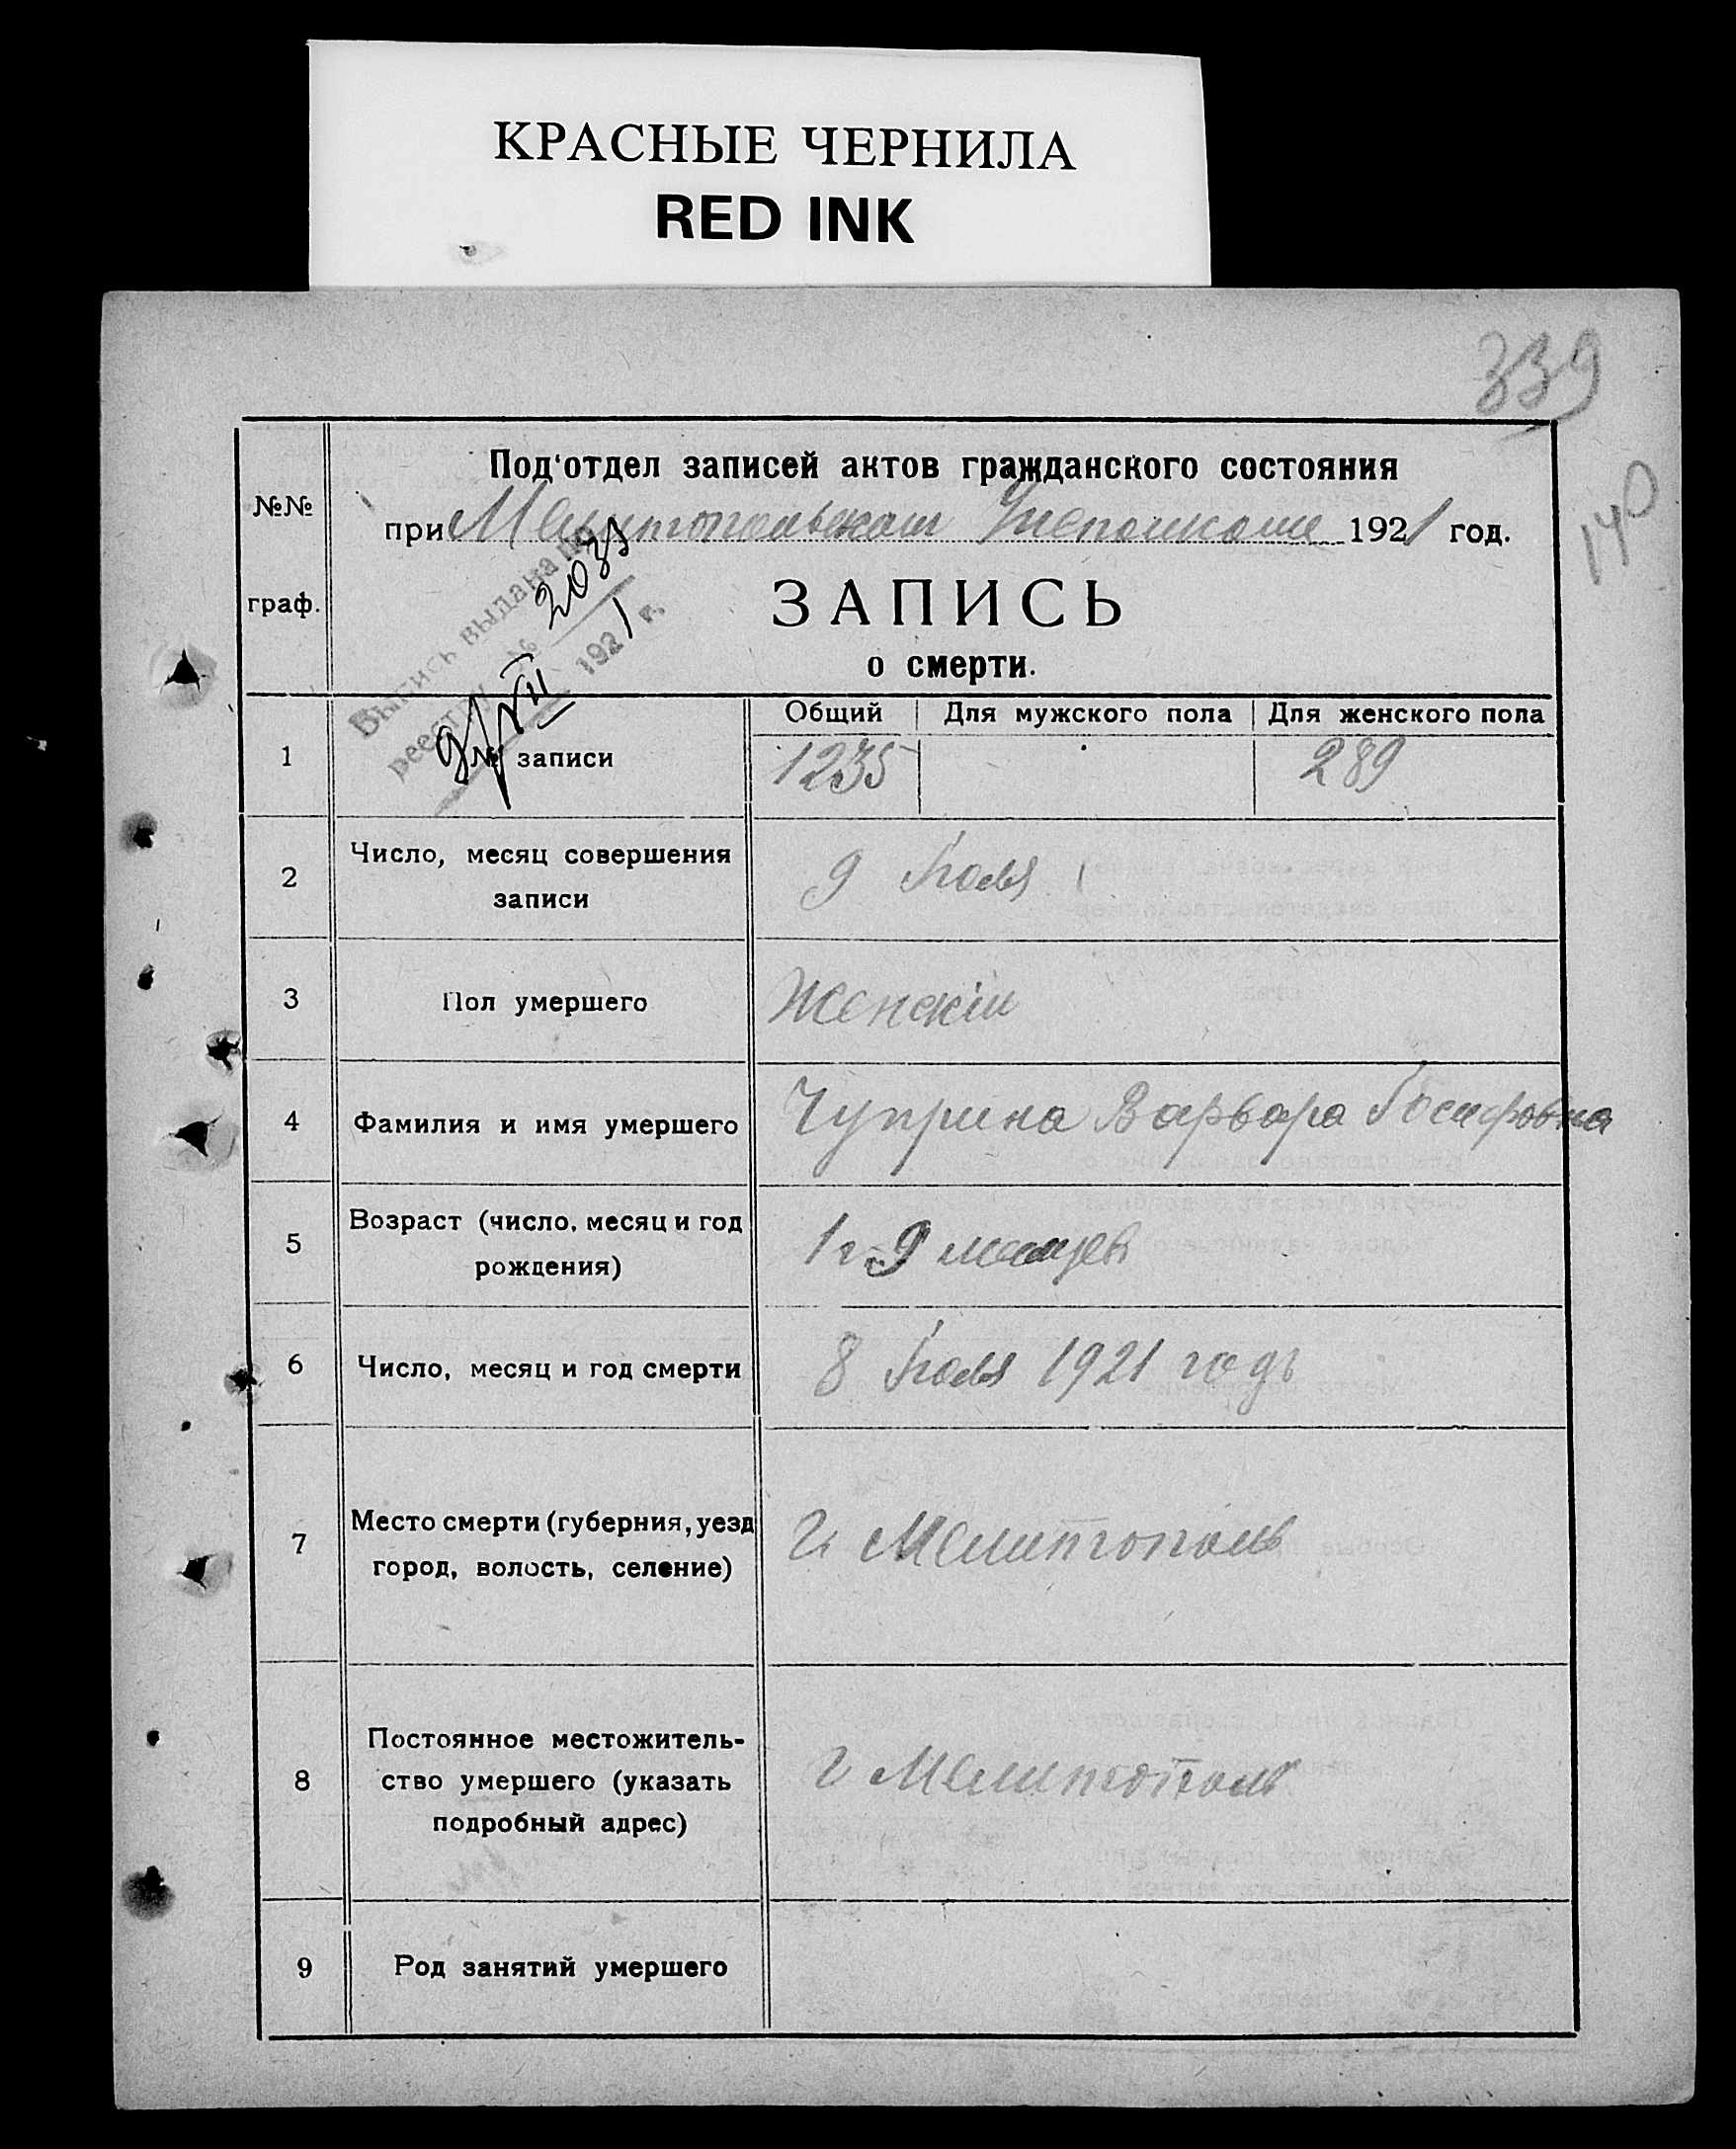 КРАСНЫЕ ЧЕРНИЛА
RED INK
339
140
№№
граф.
Под'отдел записей актов гражданского состояния
при Мелитопольском 1921 год.
ЗАПИСЬ
о смерти.
Выпись выдана по
реестру № 2031
9/VII 1921 г.
Общий Для мужского пола Для женского пола
1 № записи 1235 289
2 Число, месяц совершения
записи
9 Іюля
3 Пол умершего Женскій
4 Фамилия и имя умершего Чуприна Варвара Іосифовна
5 Возраст (число, месяц и год
рождения)
1 г. 9 месяцев
6 Число, месяц и год смерти 8 Іюля 1921 года
7 Место смерти (губерния, уезд
город, волость, селение)
г. Мелитополь
8 Постоянное местожитель-
ство умершего (указать
подробный адрес)
г Мелитополь
9 Род занятий умершего